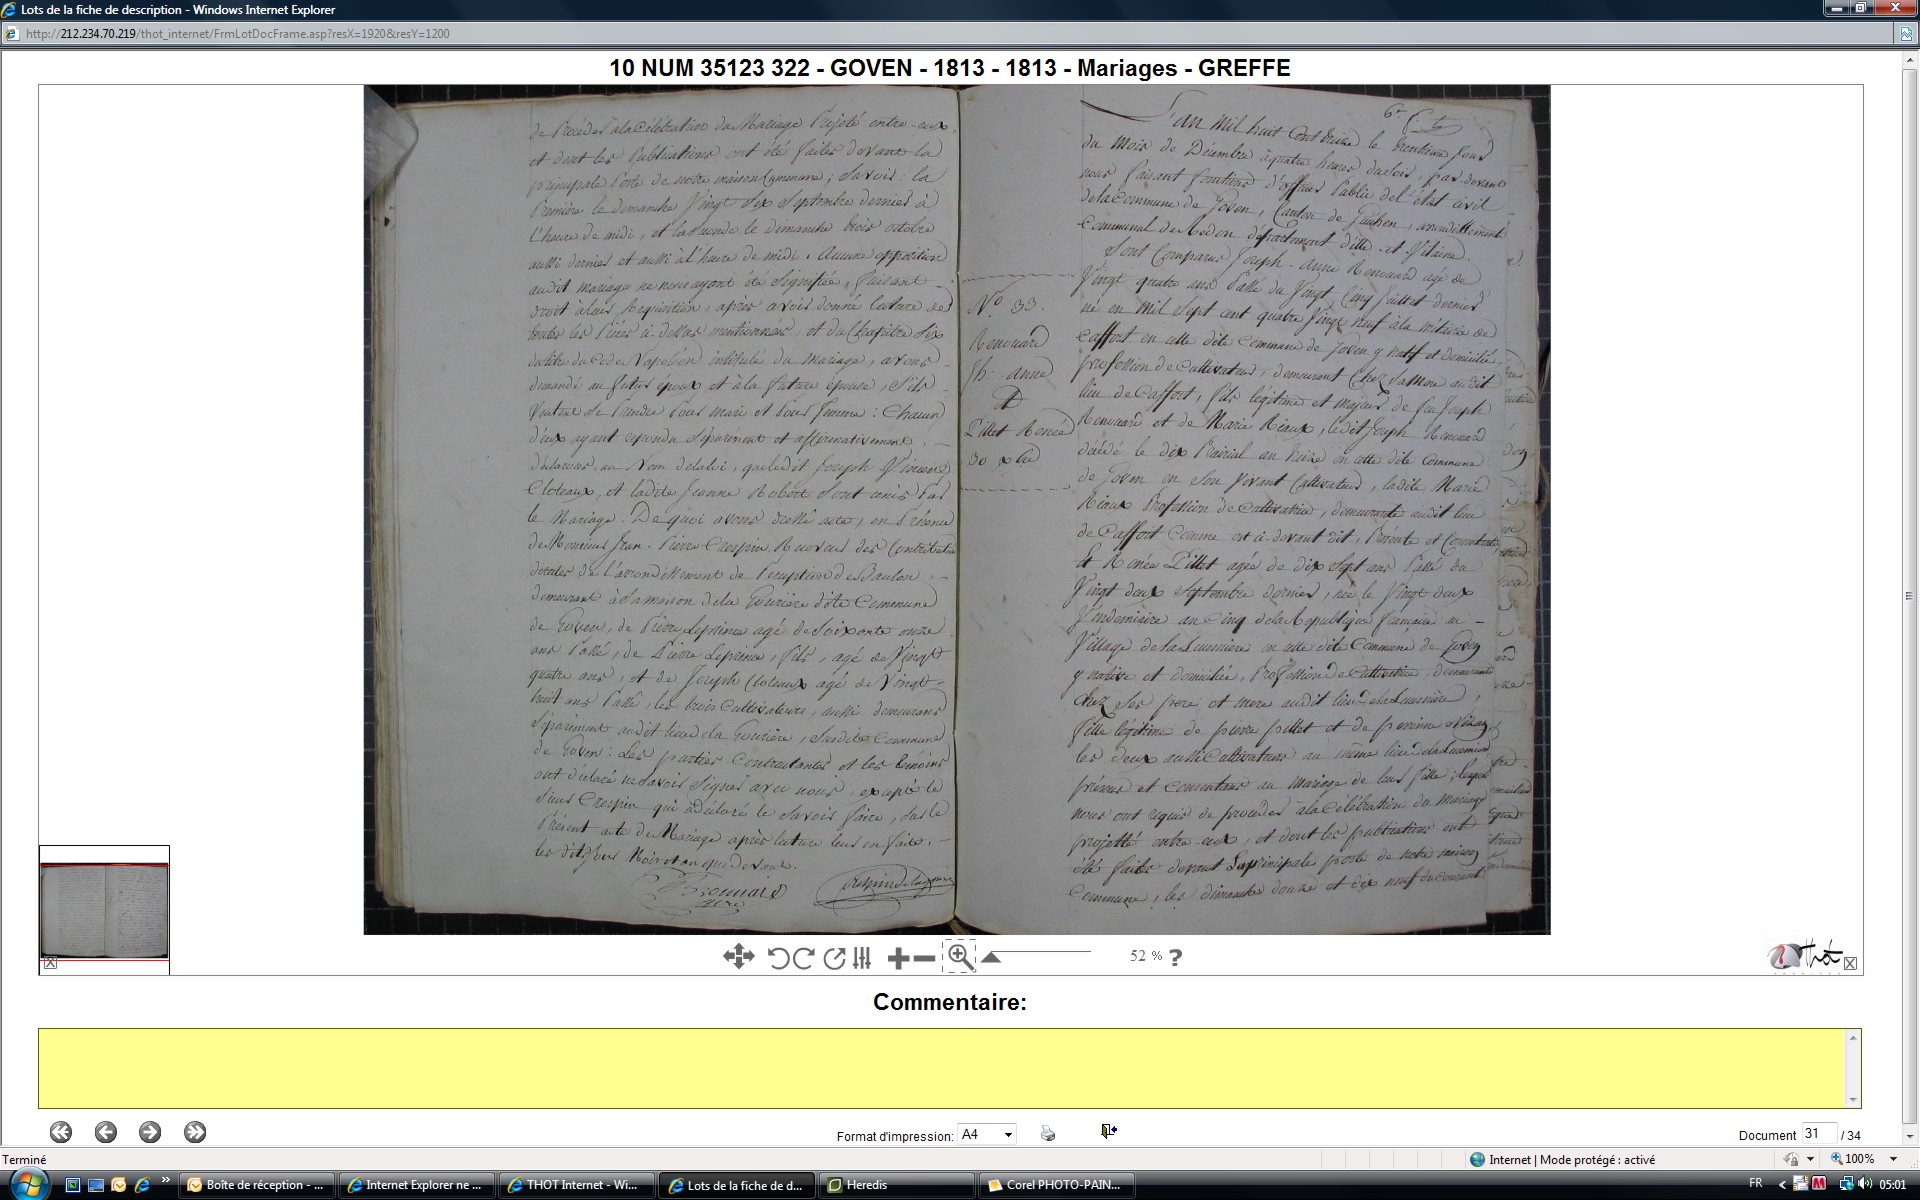 Lots de la fiche de description - Windows Internet Explorer
http://212.234.70.219/thot_internet/FrmLotDocFrame.asp?resX=1920&resY=1200
10 NUM 35123 322 - GOVEN - 1813 - 1813 - Mariages - GREFFE
de Procéder à la Célébration du Mariage Projeté entre-eux,
et dont les Publications ont été faites devant la
principale Porte de notre maison Commune ; Savoir : la
Première le dimanche Vingt Six Septembre dernier à
L'heure de midi, et la Seconde le dimanche trois octobre
aussi dernier et aussi à l'heure de midi. Aucune opposition
audit mariage ne nous ayant été Signifiée, faisant
droit à leur Requisition, après avoir donné lecture de
toutes les Pièces ci-dessus mentionnées, et du Chapitre Six
du titre du Code Napoléon intitulé du mariage, avons
demandé au futur époux et à la future épouse, S'ils
Veulent Se Prendre Pour mari et Pour femme : Chacun
d'eux ayant répondu Séparément et affirmativement,
déclarons, au Nom de la loi, que ledit Joseph Vincent
Cloteaux, et ladite Jeanne Robert Sont unis Par
le Mariage. De quoi avons dressé acte, en Présence
de Monsieur Jean-Pierre Crespin, Receveur des Contributions
directes de L'arrondissement de Perception de Baulon,
demeurant à Sa maison de la dite Commune
de Goven, de Pierre Leprince agé de Soixante onze
ans Passé, de Pierre Leprince, fils, agé de Vingt
quatre ans, et de Joseph Cloteaux agé de Vingt-
huit ans Passé, les trois Cultivateurs, aussi demeurans
Séparément audit lieu de la Susdite Commune
de Goven : Les parties Contractantes et les témoins
ont déclaré ne Savoir Signer avec nous, excepté le
Sieur Crespin qui a déclaré le Savoir faire, Sur le
Présent acte de Mariage après lecture leur en faite.
les dits jour Mois et an que devant.
N° 33.
Renouard
Jh. anne
&
Pillet Renée
30 xbre
L'an mil huit Cent treize le trentième jour
du Mois de Décembre à quatre heures du Soir, par-devant
nous faisant fonctions d'officier Public de l'état civil
de la Commune de Goven, Canton de Guichen, arrondissement
Communal de Redon département d'ille-et-Vilaine.
Sont Comparus Joseph-Anne Renouard agé de
Vingt quatre ans Passé du Vingt Cinq Juillet dernier
né en Mil Sept cent quatre Vingt neuf à la métairie de
Caffort en cette dite Commune de Goven y natif et domicilié,
profession de Cultivateur, demeurant Chez Sa Mère audit
lieu de Caffort, fils légitime et majeur de feu Joseph
Renouard et de Marie Rieux, ledit Joseph Renouard
décédé le dix Prairial an treize en cette dite Commune
de Goven en Son Vivant Cultivateur, ladite Marie
Rieux Profession de Cultivatrice, demeurante audit lieu
de Caffort Comme est ci-devant dit, Présente et Consentante,
Et Renée Pillet agée de dix Sept ans Passé du
Vingt deux Septembre dernier, née le Vingt deux
Vendemiaire an Cinq de la Republique française au
Village de la en cette dite Commune de Goven
y native et domiciliée, Profession de Cultivatrice, demeurant
Chez Ses père et mère audit lieu de la
fille légitime de pierre pillet et de perrine
les deux aussi Cultivateurs au même lieu de la
présens et consentans au Mariage de leur fille ; lesquels
nous ont requis de procéder à la Célébration du Mariage
projetté entre-eux, et dont les publications ont
été faites devant La principale porte de notre maison
Commune, les dimanche douze et dix neuf du courant
52 % ?
Thot
Commentaire:
Format d'impression: A4
Document 31 / 34
Terminé
Internet | Mode protégé : activé
100%
Boîte de réception - ...
Internet Explorer ne ...
THOT Internet - Wi...
Lots de la fiche de d...
Heredis
Corel PHOTO-PAIN...
FR
05:01